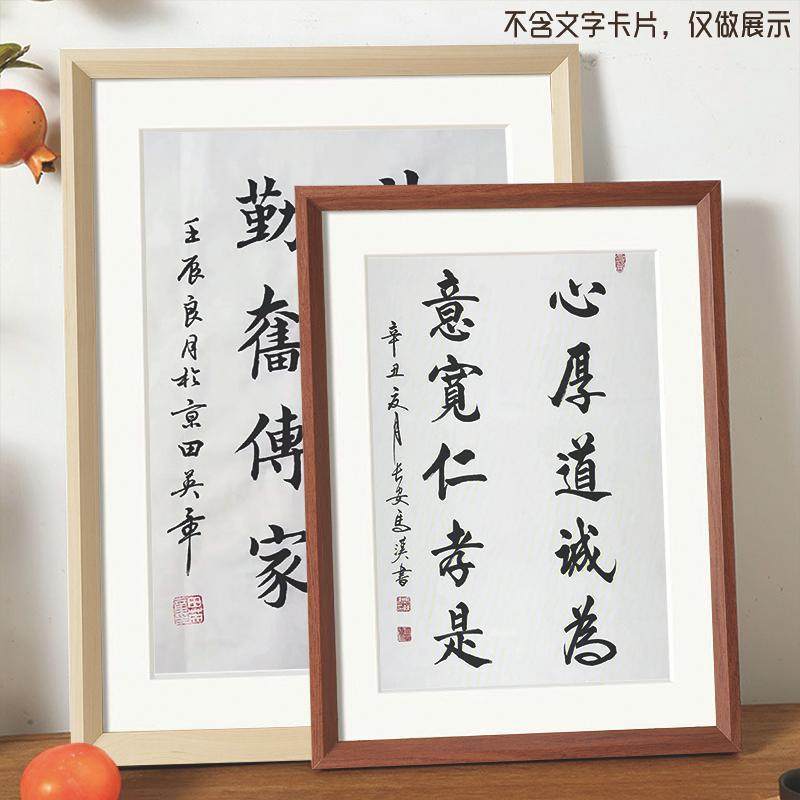 不含文字卡片，仅做展示
勤奮傳家
壬辰良月於京田英章
心厚道誠為
意寬仁孝是
辛丑夏月长安馬漢書